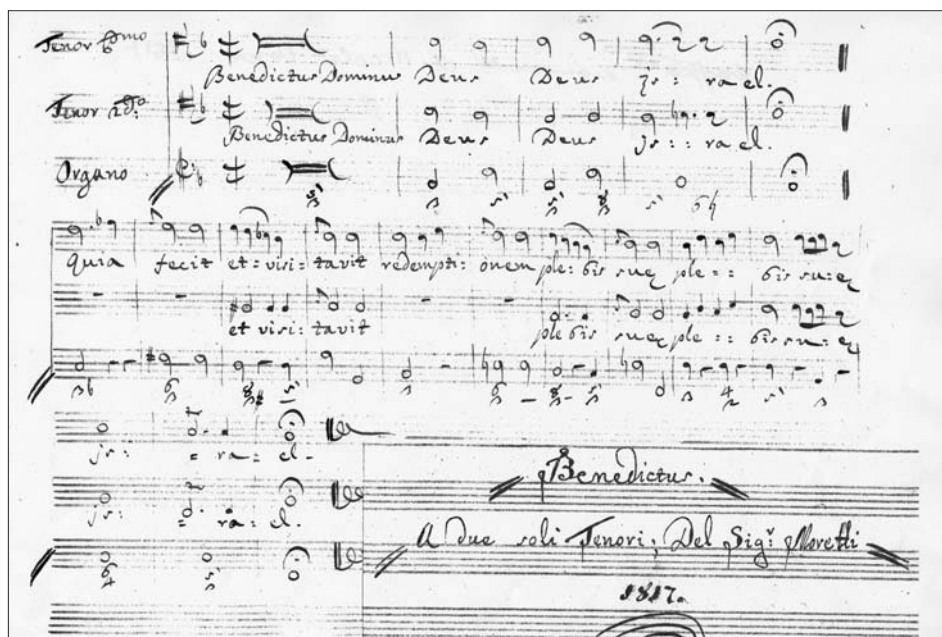 Tenor Pmo
Benedictus Dominus Deus Deus Js: ra el.
Tenor 2do:
Benedictus Dominus Deus Deus js:: ra el.
Organo
quia fecit et = visi = tavit redempti: onem ple: bis sue ple == bis su = e
et visi: tavit ple bis sue ple :: bis su = e
js: = ra = el.
js: = ra = el.
Benedictus.
A due soli Tenori; Del Sigr Moretti
1817.